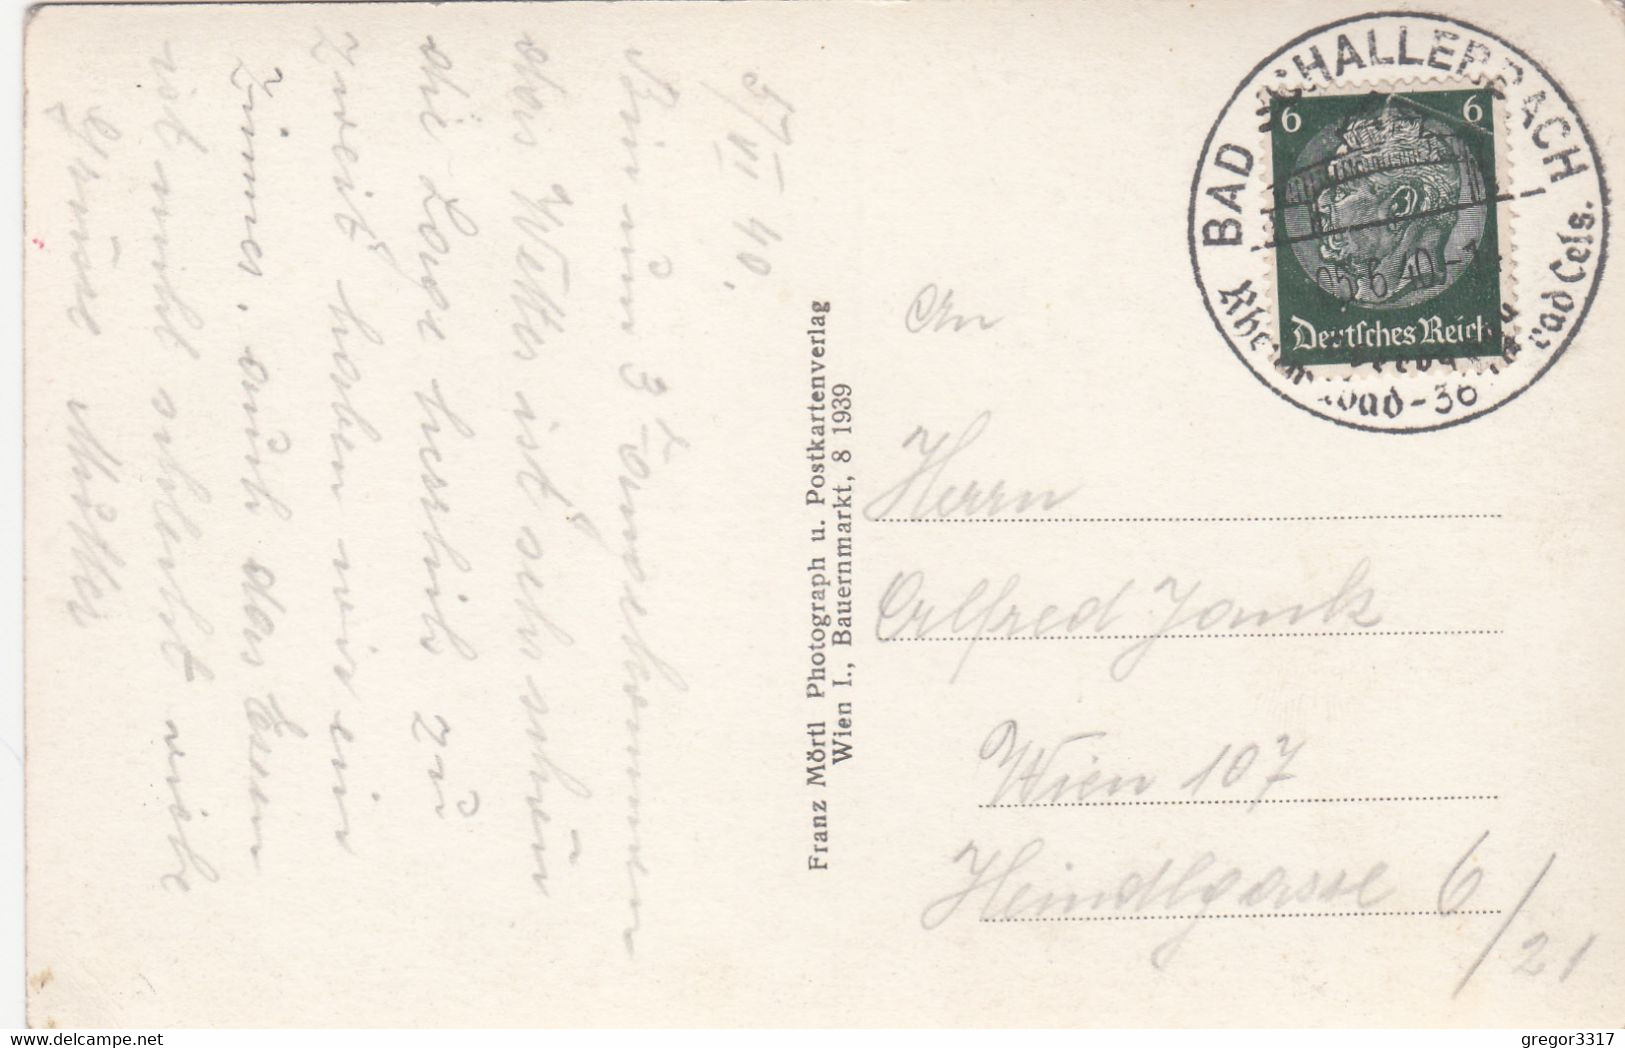 5/VI 40.
Bin um 3h angekommen
das Wetter ist sehr schön
die Lage herrlich zu
zweit haben wir ein
Zimmer, auch das Essen
ist nicht schlecht viele
Grüsse Mutter
Franz Mörtl Photograph u. Postkartenverlag
Wien I., Bauernmarkt, 8 1939
BAD SCHALLERBACH
6 6
05.6.40.-1
Deutsches Reich
rad Cels.
bad-36
An
Herrn
Alfred Jank
Wien 107
Heindlgasse 6/21
gregor3317